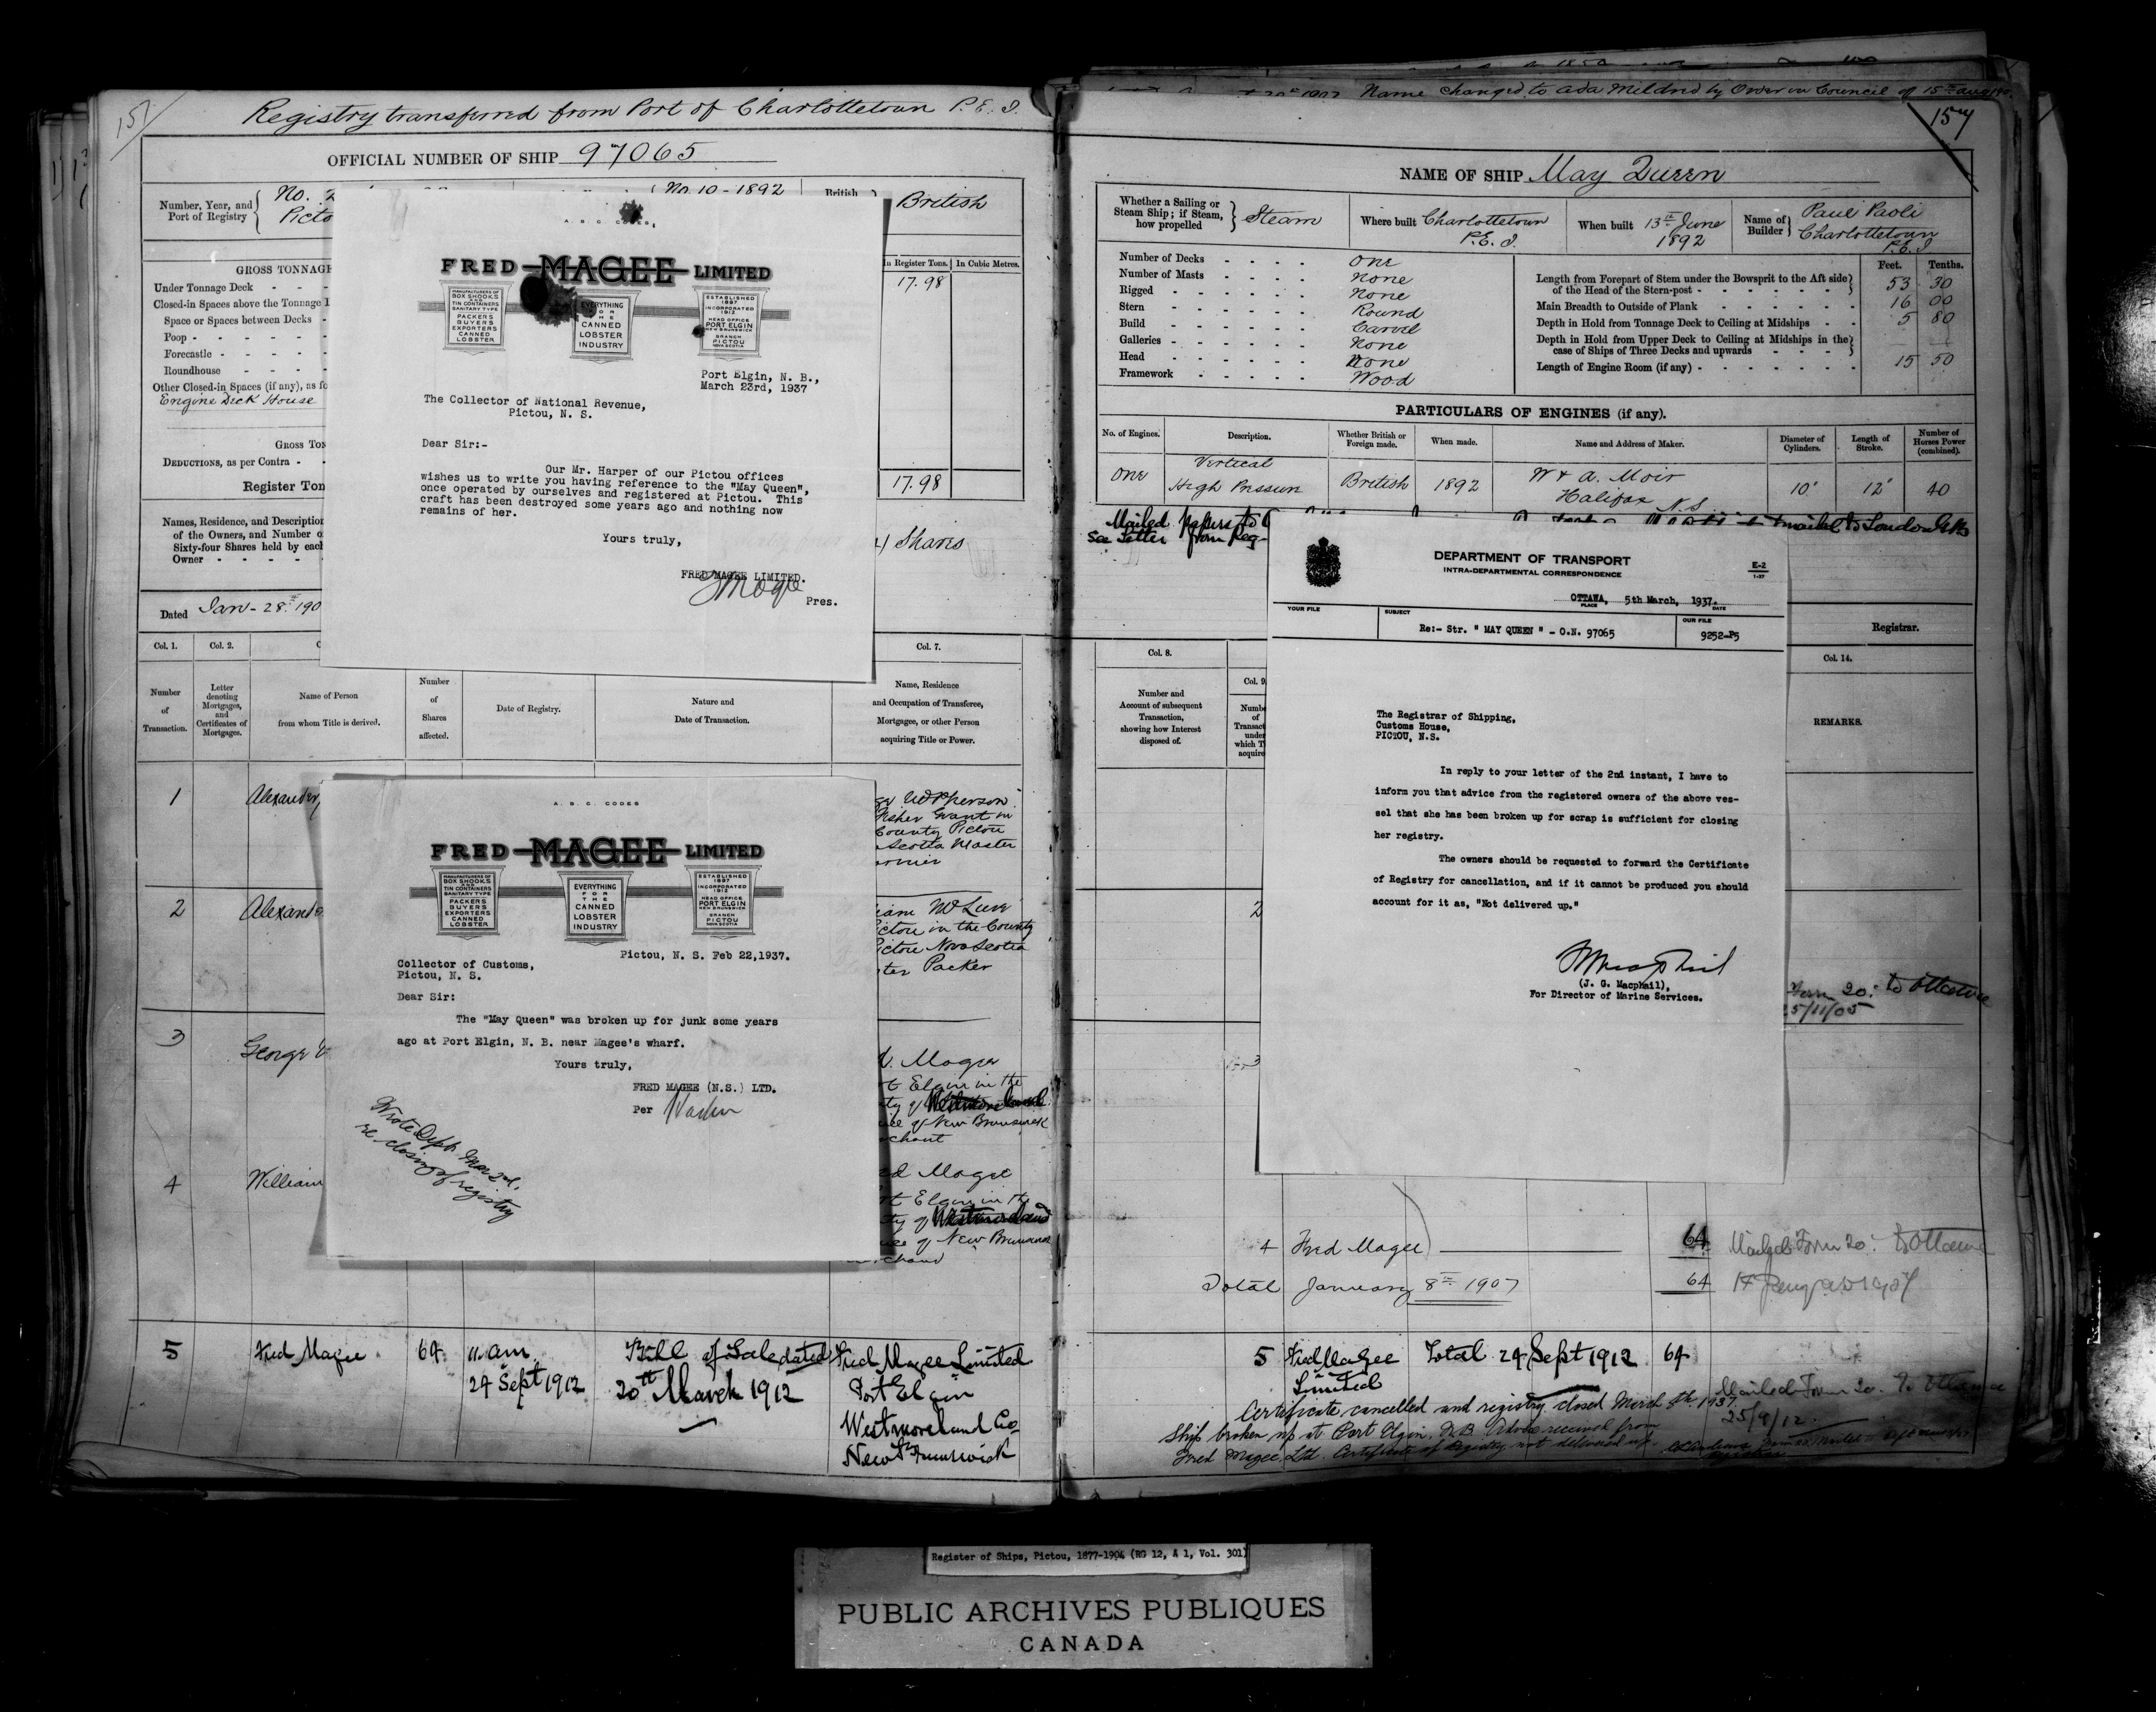 157
Registry transferred from Port of Charlottetown P.E.I.
OFFICIAL NUMBER OF SHIP 97065
Number, Year, and
Port of Registry
No.
No. 10-1892
British
British
GROSS TONNAGE
In Register Tons.
In Cubic Metres.
Under Tonnage Deck
17.98
Closed-in Spaces above the Tonnage
Space or Spaces between Decks
Poop
Forecastle
Roundhouse
Other Closed-in Spaces (if any), as
Engine Deck House
DEDUCTIONS, as per Contra
Register Ton
17.98
Names, Residence, and Description
of the Owners, and Number
Sixty-four Shares held by each
Owner
Shares
Dated Jan-28th 190
Col. 1.
Col. 2.
Col. 7.
Number
of
Transaction.
Letter
denoting
Mortgages,
and
Certificates of
Mortgages.
Name of Person
from whom Title is derived.
Number
of
Shares
affected.
Date of Registry.
Nature and
Date of Transaction.
Name, Residence
and Occupation of Transferee,
Mortgagee, or other Person
acquiring Title or Power.
1 Alexander
McPherson
Fisher Grant in
County Pictou
Scotia Master
2 Alexander
Pictou in the County
Pictou Nova Scotia
Packer
3 George
Magee
Elgin in the
of Westmoreland
of New Brunswick
4 William
Magee
Elgin in the
of Westmoreland
of New Brunswick
5 Fred Magee 64 11 am Bill of Sale dated Fred Magee Limited
24 Sept 1912 20th March 1912 Port Elgin
Westmoreland Co
New Brunswick
A. B. C. CODES.
FRED MAGEE LIMITED
MANUFACTURERS OF
BOX SHOOKS
AND
TIN CONTAINERS
SANITARY TYPE
PACKERS
BUYERS
EXPORTERS
CANNED
LOBSTER
EVERYTHING
FOR
THE
CANNED
LOBSTER
INDUSTRY
ESTABLISHED
1897
INCORPORATED
1912
HEAD OFFICE
PORT ELGIN
NEW BRUNSWICK
BRANCH
PICTOU
NOVA SCOTIA
Port Elgin, N. B.,
March 23rd, 1937
The Collector of National Revenue,
Pictou, N. S.
Dear Sir:-
Our Mr. Harper of our Pictou offices
wishes us to write you having reference to the "May Queen",
once operated by ourselves and registered at Pictou. This
craft has been destroyed some years ago and nothing now
remains of her.
Yours truly,
FRED MAGEE LIMITED.
Pres.
A. B. C. CODES
FRED MAGEE LIMITED
MANUFACTURERS OF
BOX SHOOKS
AND
TIN CONTAINERS
SANITARY TYPE
PACKERS
BUYERS
EXPORTERS
CANNED
LOBSTER
EVERYTHING
FOR
THE
CANNED
LOBSTER
INDUSTRY
ESTABLISHED
1897
INCORPORATED
1912
HEAD OFFICE
PORT ELGIN
NEW BRUNSWICK
BRANCH
PICTOU
NOVA SCOTIA
Pictou, N. S. Feb 22,1937.
Collector of Customs,
Pictou, N. S.
Dear Sir:
The "May Queen" was broken up for junk some years
ago at Port Elgin, N. B. near Magee's wharf.
Yours truly,
FRED MAGEE (N.S.) LTD.
Per
Wrote Dept. Mar 2nd,
re closing of registry
Name changed to Ada Mildred by Order in Council of 15th Aug
157
NAME OF SHIP May Queen
Whether a Sailing or
Steam Ship; if Steam,
how propelled
Steam
Where built Charlottetown
P.E.I.
When built 13th June
1892
Name of
Builder
Paul Paoli
Charlottetown
P.E.I
Number of Decks One
Number of Masts None
Rigged None
Stern Round
Build Carvel
Galleries None
Head None
Framework Wood
Feet. Tenths.
Length from Forepart of Stem under the Bowsprit to the Aft side
of the Head of the Stern-post 53 30
Main Breadth to Outside of Plank 16 00
Depth in Hold from Tonnage Deck to Ceiling at Midships 5 80
Depth in Hold from Upper Deck to Ceiling at Midships in the
case of Ships of Three Decks and upwards
Length of Engine Room (if any) 15 50
PARTICULARS OF ENGINES (if any).
No. of Engines.
Description.
Whether British or
Foreign made.
When made.
Name and Address of Maker.
Diameter of
Cylinders.
Length of
Stroke.
Number of
Horses Power
(combined).
One
Vertical
High Pressure
British
1892
W & A. Moir
Halifax N.S.
10"
12"
40
Mailed papers to
mailed to London GB
See Letter from Reg-
Registrar.
DEPARTMENT OF TRANSPORT
INTRA-DEPARTMENTAL CORRESPONDENCE
E-2
1-37
OTTAWA, 5th March, 1937.
PLACE DATE
YOUR FILE
SUBJECT
Re:- Str. " MAY QUEEN " - O.N. 97065
OUR FILE
9252-P5
The Registrar of Shipping,
Customs House,
PICTOU, N.S.
In reply to your letter of the 2nd instant, I have to
inform you that advice from the registered owners of the above ves-
sel that she has been broken up for scrap is sufficient for closing
her registry.
The owners should be requested to forward the Certificate
of Registry for cancellation, and if it cannot be produced you should
account for it as, "Not delivered up."
(J. G. Macphail),
For Director of Marine Services.
Col. 8.
Col. 9.
Col. 14.
Number and
Account of subsequent
Transaction,
showing how Interest
disposed of.
REMARKS.
2
Form 20 to Ottawa
25/11/05
3
4 Fred Magee 64 Mailed Form 20 to Ottawa
Total January 8th 1907 64
5 Fred Magee Total 24 Sept 1912 64
Limited
Mailed Form 20 to Ottawa
25/9/12
Certificate cancelled and registry closed March 8th 1937.
Ship broken up at Port Elgin, N.B. Advice received from
Fred Magee Ltd. Certificate of Registry not delivered up.
Register of Ships, Pictou, 1877-1904 (RG 12, A 1, Vol. 301)
PUBLIC ARCHIVES PUBLIQUES
CANADA